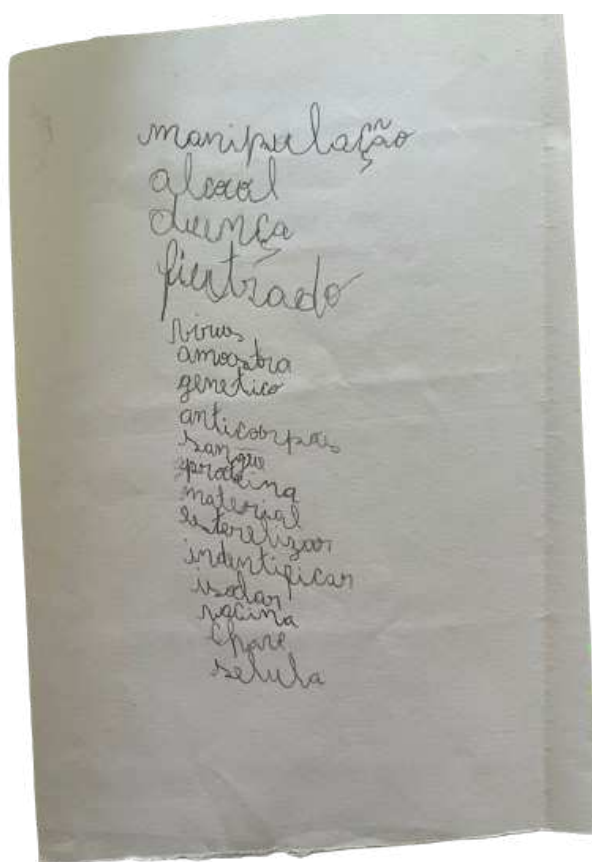 manipulação
alcool
duença
fieutrado
virus
amoostra
genetico
anticorpos
sangue
proteina
material
esterelizar
indentificar
isolar
vacina
chave
selula